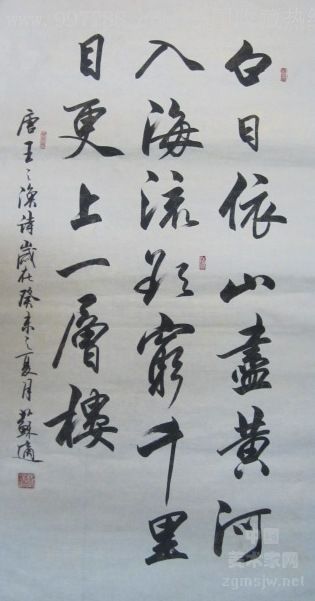 白日依山盡黄河
入海流欲窮千里
目更上一層樓
唐王之渙詩歲在癸未之夏月蘇適
www.997788.com
中国
美术家网
zgmsjw.net